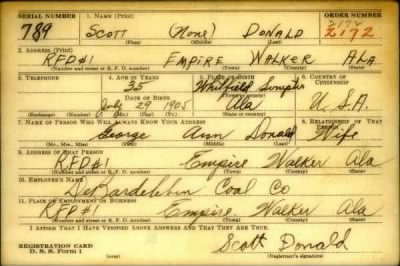 SERIAL NUMBER 1. NAME (Print) ORDER NUMBER
789 Scott (None) Donald 2172 2172
(First) (Middle) (Last)
2. ADDRESS (Print)
RFD#1 Empire Walker Ala
(Number and street or R. F. D. number) (Town) (County) (State)
3. TELEPHONE 4. AGE IN YEARS 5. PLACE OF BIRTH 6. COUNTRY OF CITIZENSHIP
35 Whitfield Sumpter
DATE OF BIRTH
July 29 1905 Ala U.S.A.
7. NAME OF PERSON WHO WILL ALWAYS KNOW YOUR ADDRESS 8. RELATIONSHIP OF THAT PERSON
George Ann Donald Wife
(Mr., Mrs., Miss) (First) (Middle) (Last)
9. ADDRESS OF THAT PERSON
RFD#1 Empire Walker Ala
(Number and street or R. F. D. number) (Town) (County) (State)
10. EMPLOYER'S NAME
DeBardeleben Coal Co
11. PLACE OF EMPLOYMENT OR BUSINESS
RFD#1 Empire Walker Ala
(Number and street or R. F. D. number) (Town) (County) (State)
I AFFIRM THAT I HAVE VERIFIED ABOVE ANSWERS AND THAT THEY ARE TRUE.
REGISTRATION CARD Scott Donald
D. S. S. Form 1 (over) (Registrant's signature)